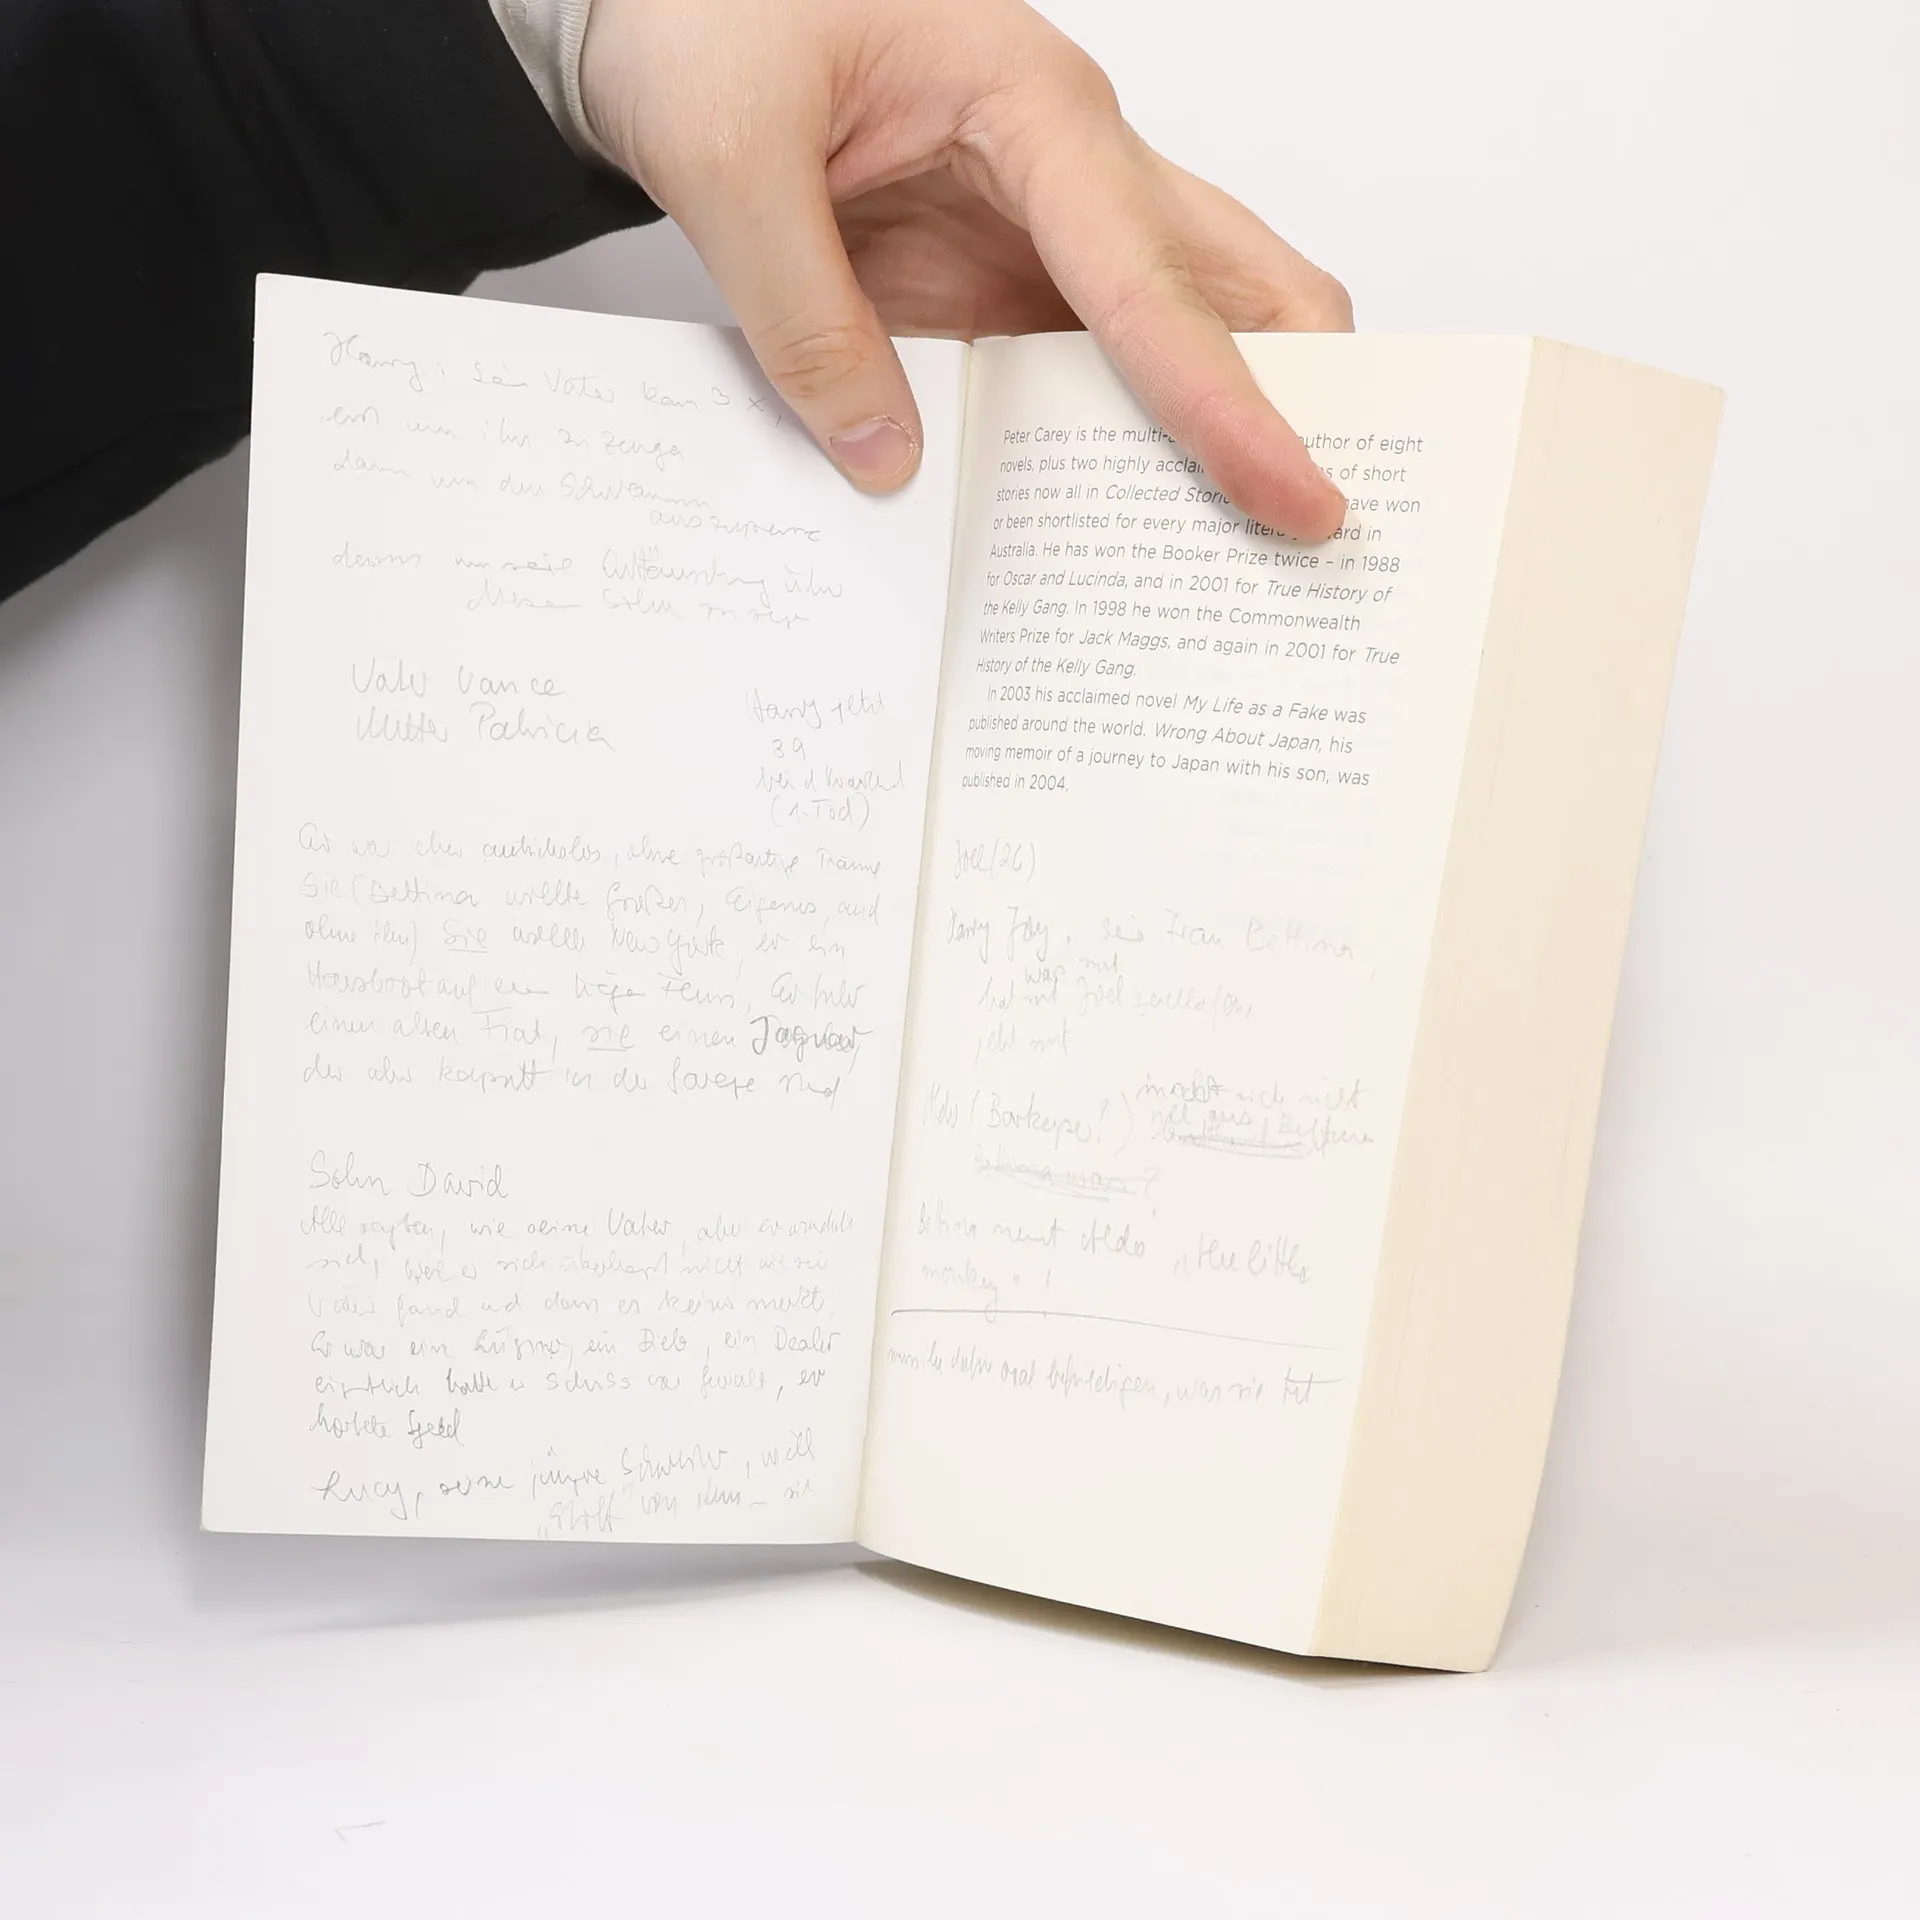 Harry: Sein Vater kam 3 x,
erst um ihn zu zeugen
dann um den Schwamm
auszupressen
dann um seine Enttäuschung über
diesen Sohn zu
Vater Vance
Mutter Patricia
Harry jetzt
39
(1. Tod)
Er war eher ambitionslos, ohne großartige Träume
Sie (Bettina wollte Großes, Eigenes, und
ohne ihn) Sie wollte New York, er ein
Hausboot auf Fluss, Er fuhr
einen alten Fiat, sie einen Jaguar,
der aber kaputt in der Garage stand
Sohn David
Alle sagten, wie seine Vater, aber er
sich, weil er sich überhaupt nicht wie sein
Vater fand und dass es keiner merkte,
Er war ein Lügner, ein Dieb, ein Dealer
eigentlich hatte er Schiss vor Gewalt, er
Speed
Lucy, seine jüngere Schwester, will
"Stoff" von ihm – sie
Peter Carey is the multi- author of eight
novels, plus two highly of short
stories now all in Collected have won
or been shortlisted for every major in
Australia. He has won the Booker Prize twice – in 1988
for Oscar and Lucinda, and in 2001 for True History of
the Kelly Gang. In 1998 he won the Commonwealth
Writers Prize for Jack Maggs, and again in 2001 for True
History of the Kelly Gang.
In 2003 his acclaimed novel My Life as a Fake was
published around the world. Wrong About Japan, his
moving memoir of a journey to Japan with his son, was
published in 2004.
Joel (26)
Harry Joy, seine Frau Bettina,
was mit
hat mit Joel
Aldo (Barkeeper!) macht sich nicht
viel aus Bettina
Bettina nennt Aldo "the little
monkey"!
muss ihn dafür oral befriedigen, was sie tut